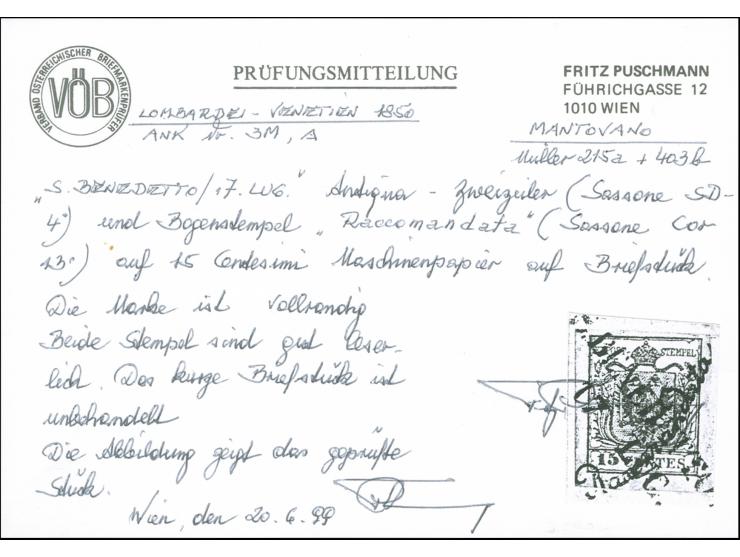 VERBAND ÖSTERREICHISCHER BRIEFMARKENPRÜFER
VÖB
PRÜFUNGSMITTEILUNG
FRITZ PUSCHMANN
FÜHRICHGASSE 12
1010 WIEN
LOMBARDEI - VENETIEN 1850
ANK Nr. 3M, A
MANTOVANO
Müller 215a + 403b
"S. BENEDETTO / 17. LUG." Antiqua - Zweizeiler (Sassone SD-
4°) und Bogenstempel "Raccomandata" (Sassone Cor
13°) auf 15 Centesimi Maschinenpapier auf Briefstück.
Die Marke ist vollrandig
Beide Stempel sind gut leser-
lich. Das Briefstück ist
unbehandelt
Die Abbildung zeigt das geprüfte
Stück.
Wien, den 20.6.99
STEMPEL
15 CENTES
Raccomandata